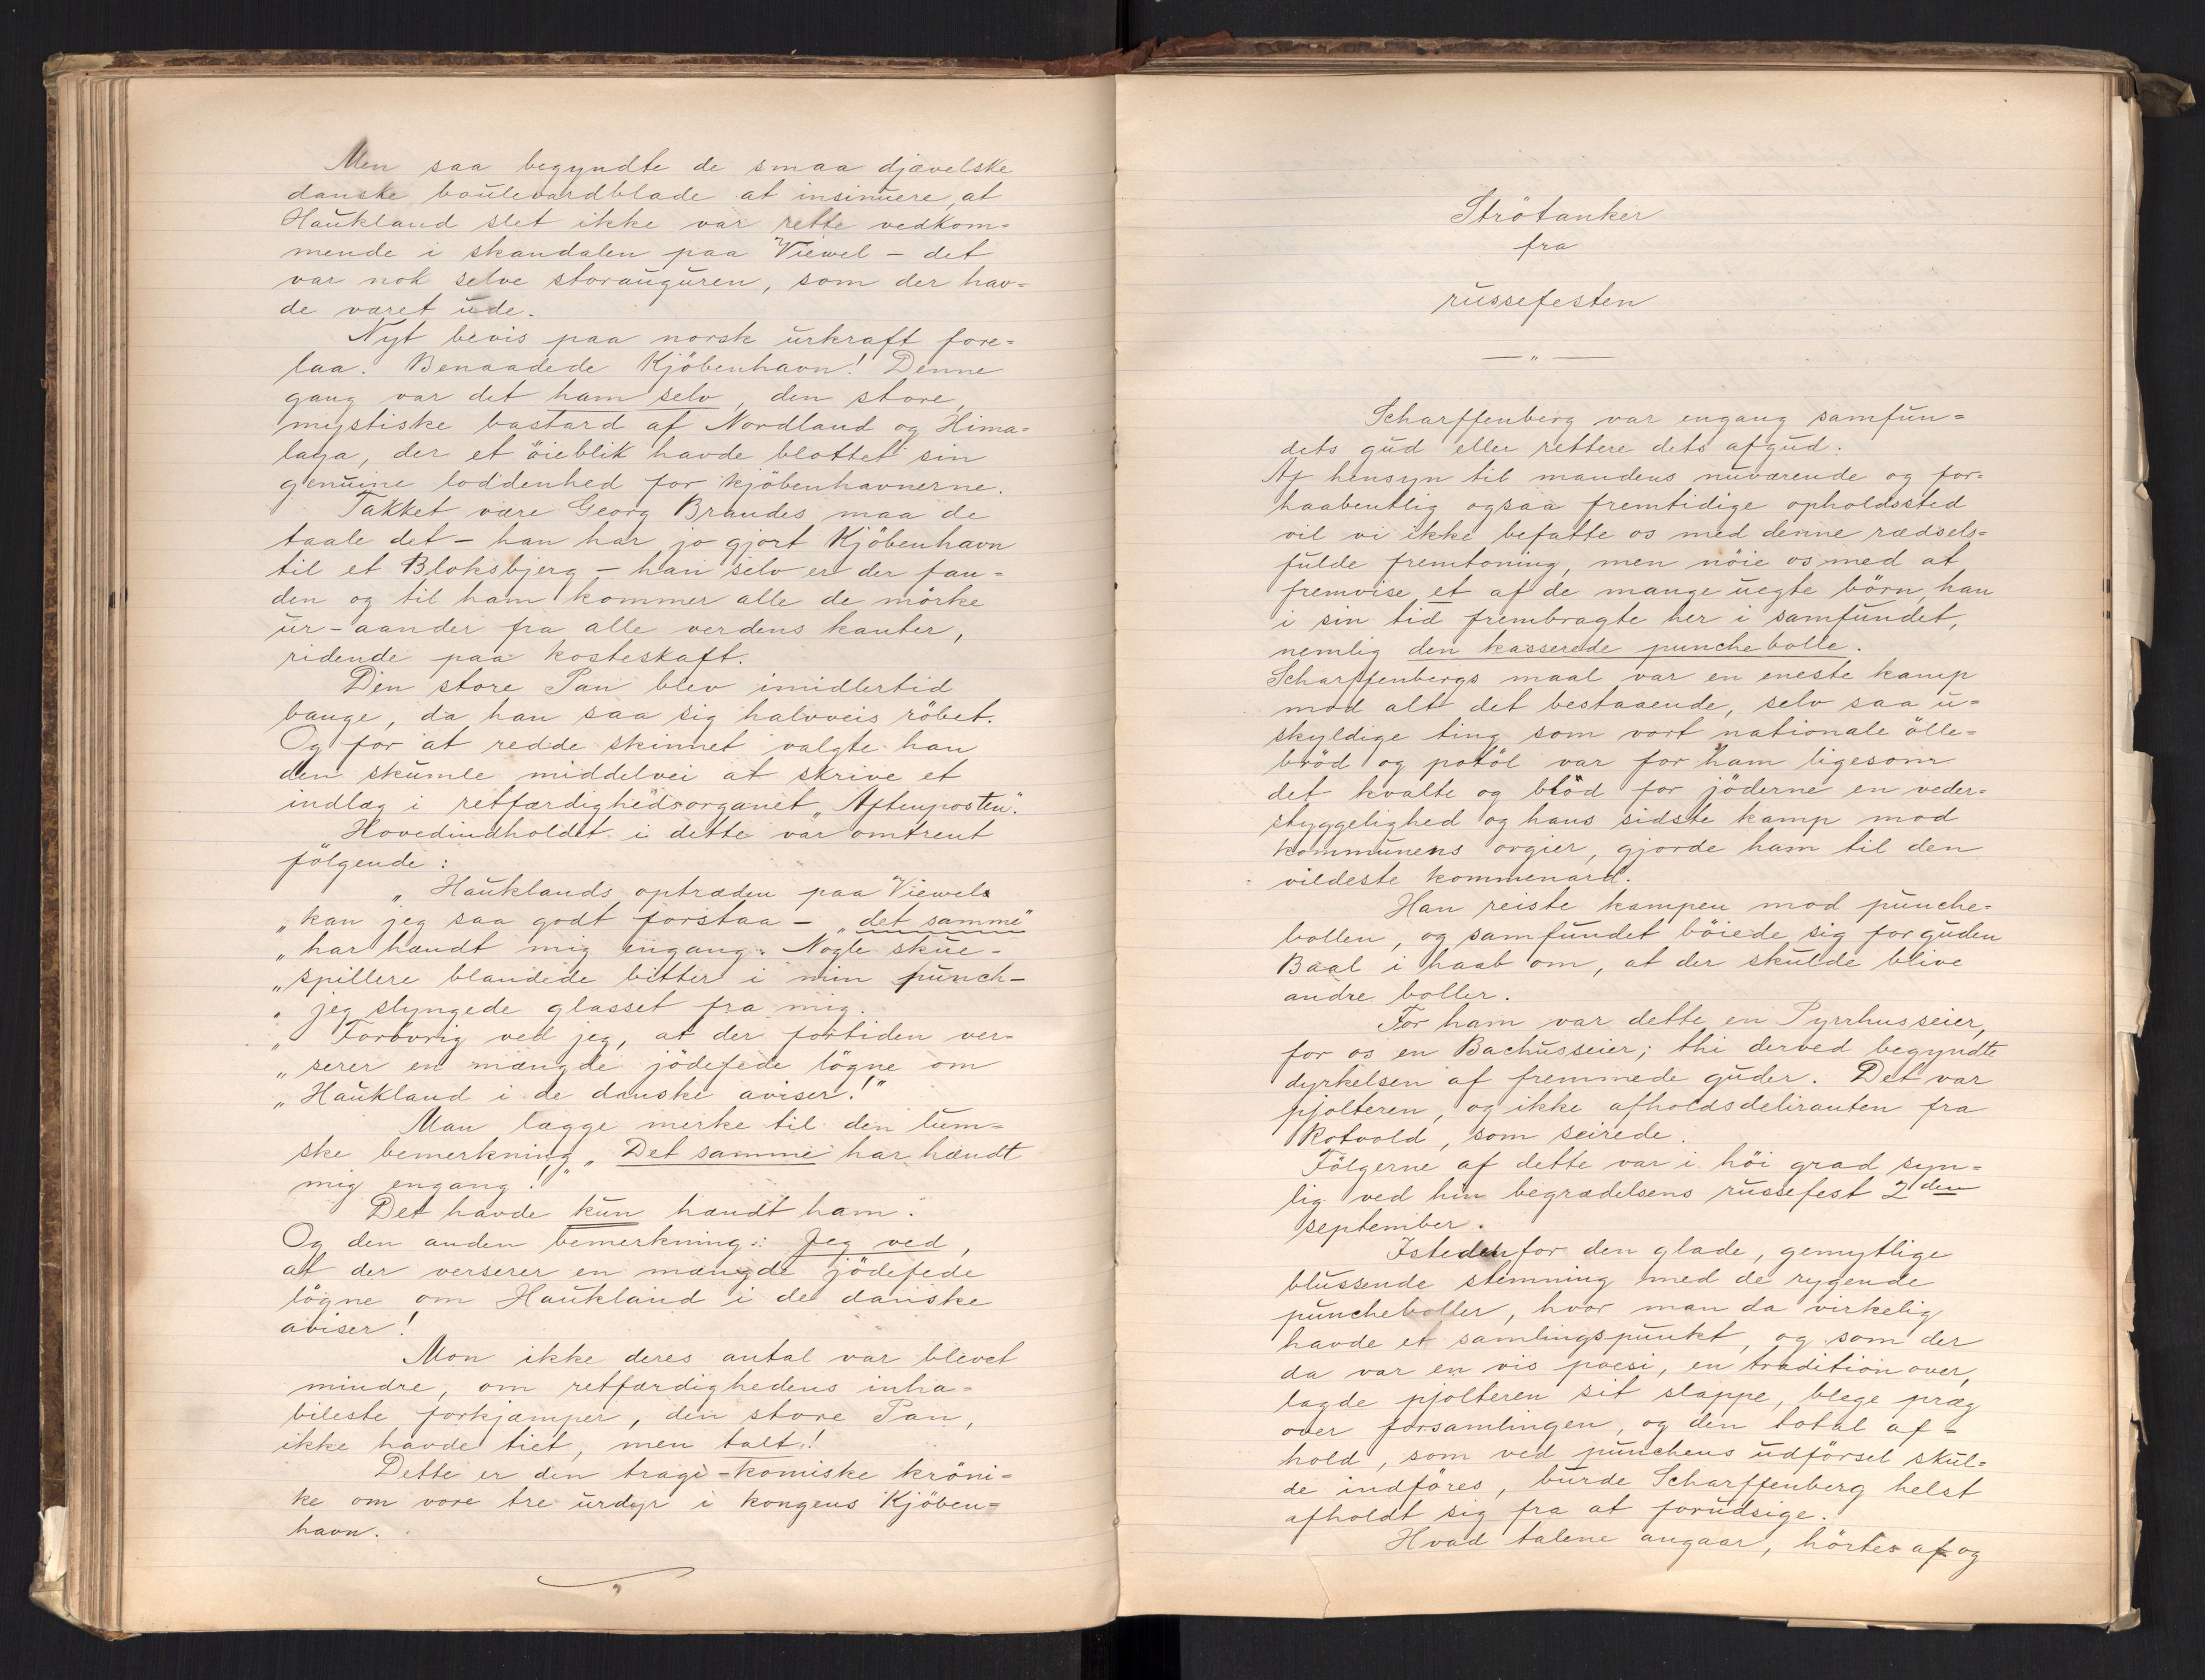 Men saa begyndte de smaa djævelske
danske boulevardblade at insinuere, at
Haukland slet ikke var rette vedkom=
mende i skandalen paa Viewel – det
var nok selve storauguren, som der hav=
de været ude.
Nyt bevis paa norsk urkraft fore=
laa. Benaadede Kjöbenhavn! Denne
gang var det ham selv, den store,
mystiske bastard af Nordland og Hima=
laya, der et öieblik havde blottet sin
genuine loddenhed for kjöbenhavnerne.
Takket være Georg Brandes maa de
taale det – han har jo gjort Kjöbenhavn
til et Bloksbjerg – han selv er der fan=
den og til ham kommer alle de mörke
ur-aander fra alle verdens kanter,
ridende paa kosteskaft.
Den store Pan blev imidlertid
bange, da han saa sig halvveis röbet.
Og for at redde skinnet valgte han
den skumle middelvei at skrive et
indlæg i retfærdighedsorganet „Aftenposten".
Hovedindholdet i dette var omtrent
fölgende:
„Hauklands optræden paa Viewels
„kan jeg saa godt forstaa – „det samme"
„har hændt mig engang. Nogle skue=
„spillere blandede bitter i min punch –
„jeg slyngede glasset fra mig.
„Forövrig ved jeg, at der fortiden ver=
„serer en mængde jödefede lögne om
„Haukland i de danske aviser!"
Man lægge merke til den lum=
ske bemerkning „Det samme har hændt
mig engang!"
Det havde kun hændt ham.
Og den anden bemerkning: Jeg ved,
at der verserer en mængde jödefede
lögne om Haukland i de danske
aviser!
Mon ikke deres antal var blevet
mindre, om retfærdighedens inha=
bileste forkjæmper, den store Pan,
ikke havde tiet, men talt!
Dette er den tragi-komiske kröni=
ke om vore tre urdyr i kongens Kjöben=
havn.
Strötanker
fra
russefesten
Scharffenberg var engang samfun=
dets gud eller rettere dets afgud.
Af hensyn til mandens nuværende og for=
haabentlig ogsaa fremtidige opholdssted
vil vi ikke befatte os med denne rædsels=
fulde fremtoning, men nöie os med at
fremvise et af de mange uegte börn, han
i sin tid frembragte her i samfundet,
nemlig den kasserede punchebolle.
Scharffenbergs maal var en eneste kamp
mod alt det bestaaende, selv saa u=
skyldige ting som vort nationale ölle=
bröd og potöl var for ham ligesom
det kvalte og blöd for jöderne en veder=
styggelighed og hans sidste kamp mod
kommunens orgier, gjorde ham til den
vildeste kommenard.
Han reiste kampen mod punche=
bollen, og samfundet böiede sig for guden
Baal i haab om, at der skulde blive
andre boller.
For ham var dette en Pyrrhusseier,
for os en Bachusseier; thi derved begyndte
dyrkelsen af fremmede guder. Det var
pjolteren, og ikke afholdsdeliranten fra
Rotvold, som seirede.
Fölgerne af dette var i höi grad syn=
lig ved hin begrædelsens russefest 2den
september.
Istedenfor den glade, gemytlige
blussende stemning med de rygende
puncheboller, hvor man da virkelig
havde et samlingspunkt, og som der
da var en vis poesi, en tradition over,
lagde pjolteren sit slappe, blege præg
over forsamlingen, og den total af=
hold, som ved punchens udförsel skul=
de indföres, burde Scharffenberg helst
afholdt sig fra at forudsige.
Hvad talene angaar, hörtes af og